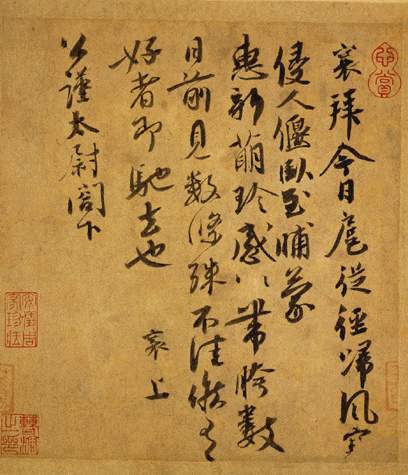 襄拜今日扈從徑歸風寒
侵人偃臥至晡蒙
惠新萌珍感〻帶胯數
日前見數條殊不佳候有
好者即馳去也
襄上
公謹太尉閣下
心賞
安儀周家珍藏